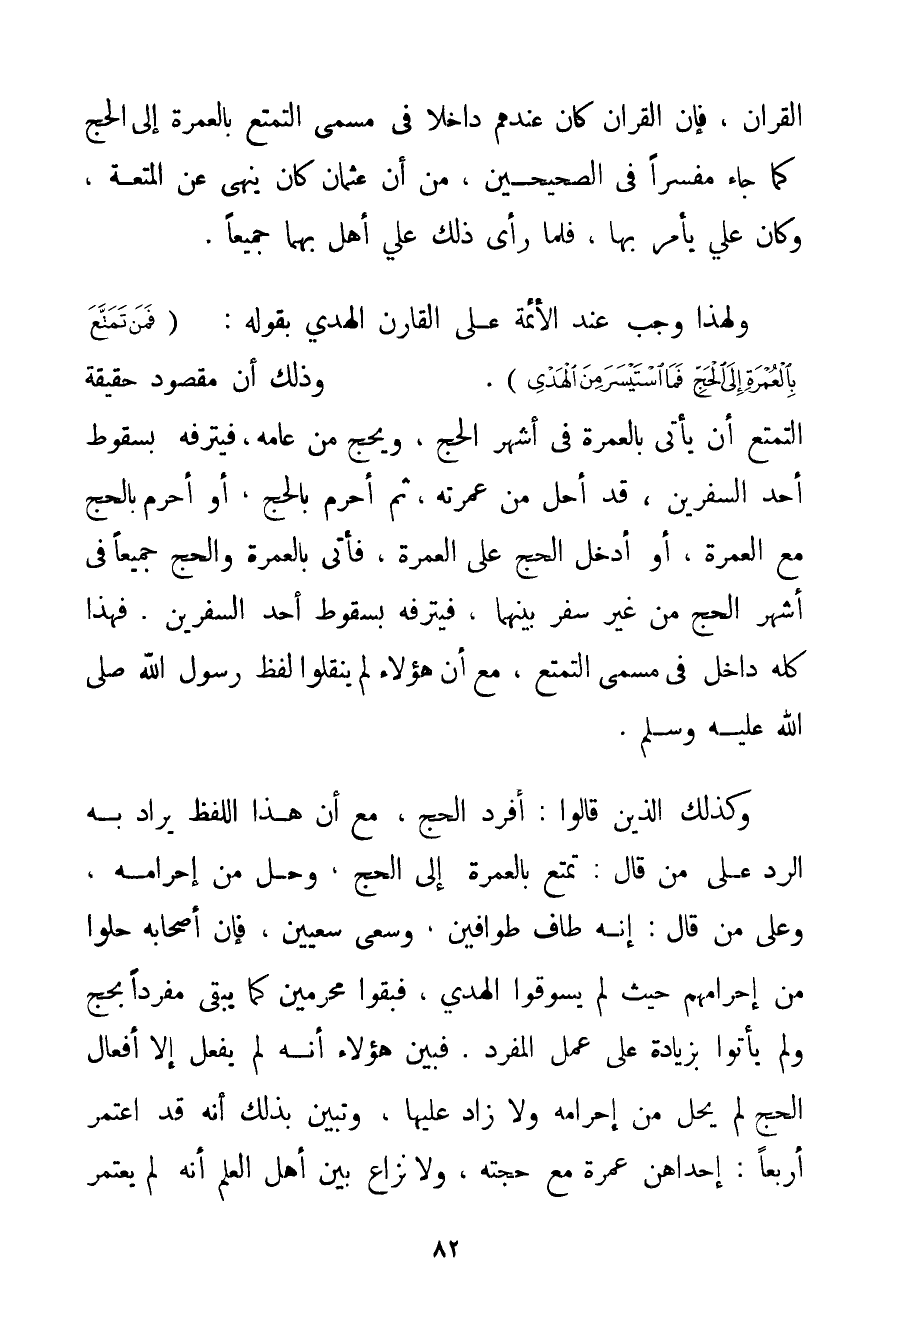 القران ، فإن القران كان عندهم داخلا فى مسمى التمتع بالعمرة إلى الحج
كما جاء مفسراً فى الصحيحــين ، من أن عثمان كان ينهى عن المتعــة ،
وكان علي يأمر بها ، فلما رأى ذلك علي أهل بهما جميعاً .
ولهذا وجب عند الأئمة عــلى القارن الهدي بقوله : ( فَمَن تَمَتَّعَ
بِالْعُمْرَةِ إِلَى الْحَجِّ فَمَا اسْتَيْسَرَ مِنَ الْهَدْيِ ) . وذلك أن مقصود حقيقة
التمتع أن يأتى بالعمرة فى أشهر الحج ، ويحج من عامه ، فيترفه بسقوط
أحد السفرين ، قد أحل من عمرته ، ثم أحرم بالحج ، أو أحرم بالحج
مع العمرة ، أو أدخل الحج على العمرة ، فأتى بالعمرة والحج جميعاً فى
أشهر الحج من غير سفر بينهما ، فيترفه بسقوط أحد السفرين . فهذا
كله داخل فى مسمى التمتع ، مع أن هؤلاء لم ينقلوا لفظ رسول الله صلى
الله عليــه وســلم .
وكذلك الذين قالوا : أفرد الحج ، مع أن هــذا اللفظ يراد بــه
الرد عــلى من قال : تمتع بالعمرة إلى الحج ، وحــل من إحرامــه ،
وعلى من قال : إنــه طاف طوافين ، وسعى سعيين ، فإن أصحابه حلوا
من إحرامهم حيث لم يسوقوا الهدي ، فبقوا محرمين كما يبقى مفرداً بحج
ولم يأتوا بزيادة على عمل المفرد . فبين هؤلاء أنــه لم يفعل إلا أفعال
الحج لم يحل من إحرامه ولا زاد عليها ، وتبين بذلك أنه قد اعتمر
أربعاً : إحداهن عمرة مع حجته ، ولا نزاع بين أهل العلم أنه لم يعتمر
٨٢